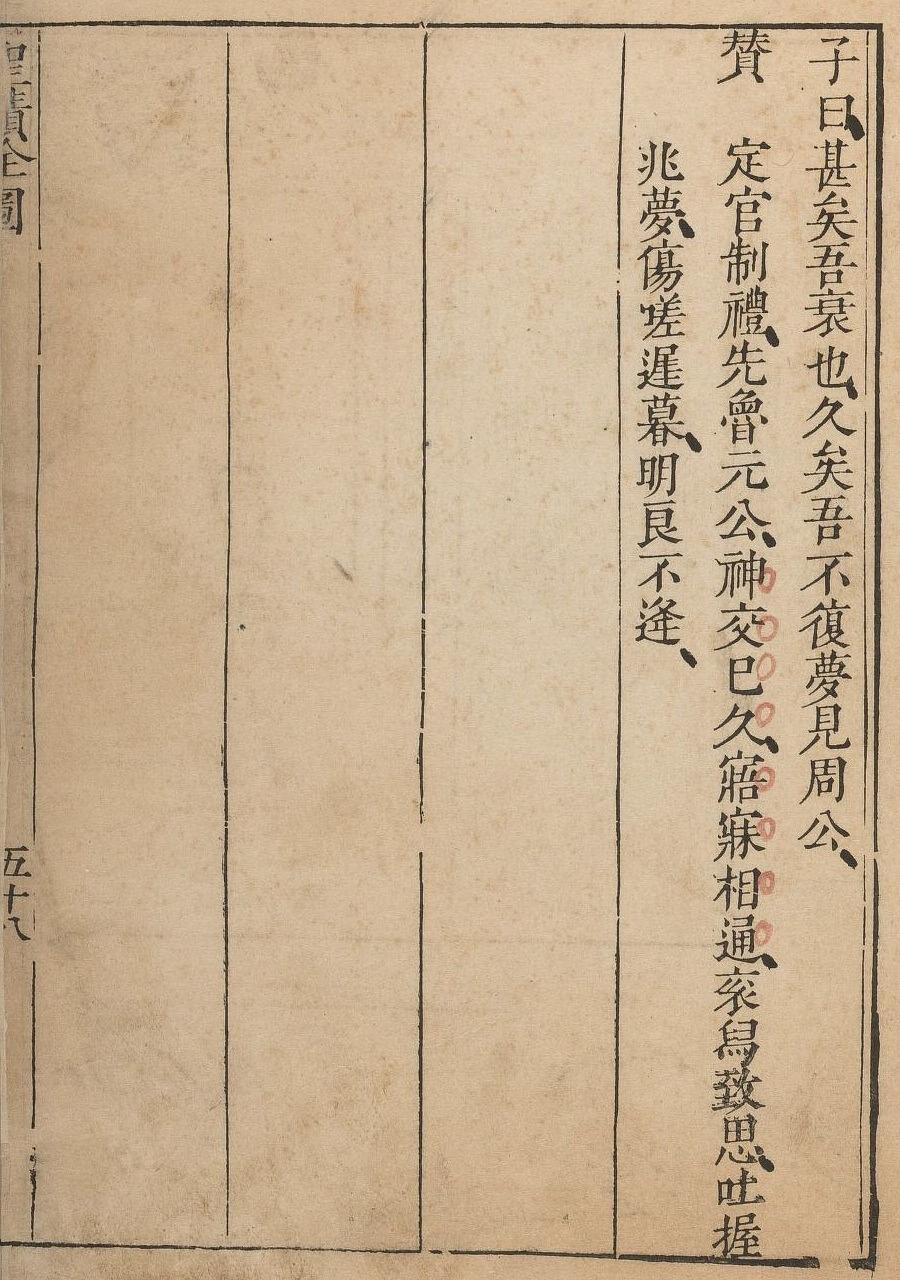 子曰甚矣吾衰也久矣吾不復夢見周公
賛　定官制禮先魯元公神交已久寤寐相通衮舄致思吐握
兆夢傷嗟遲暮明良不逢
聖蹟全圖
五十八